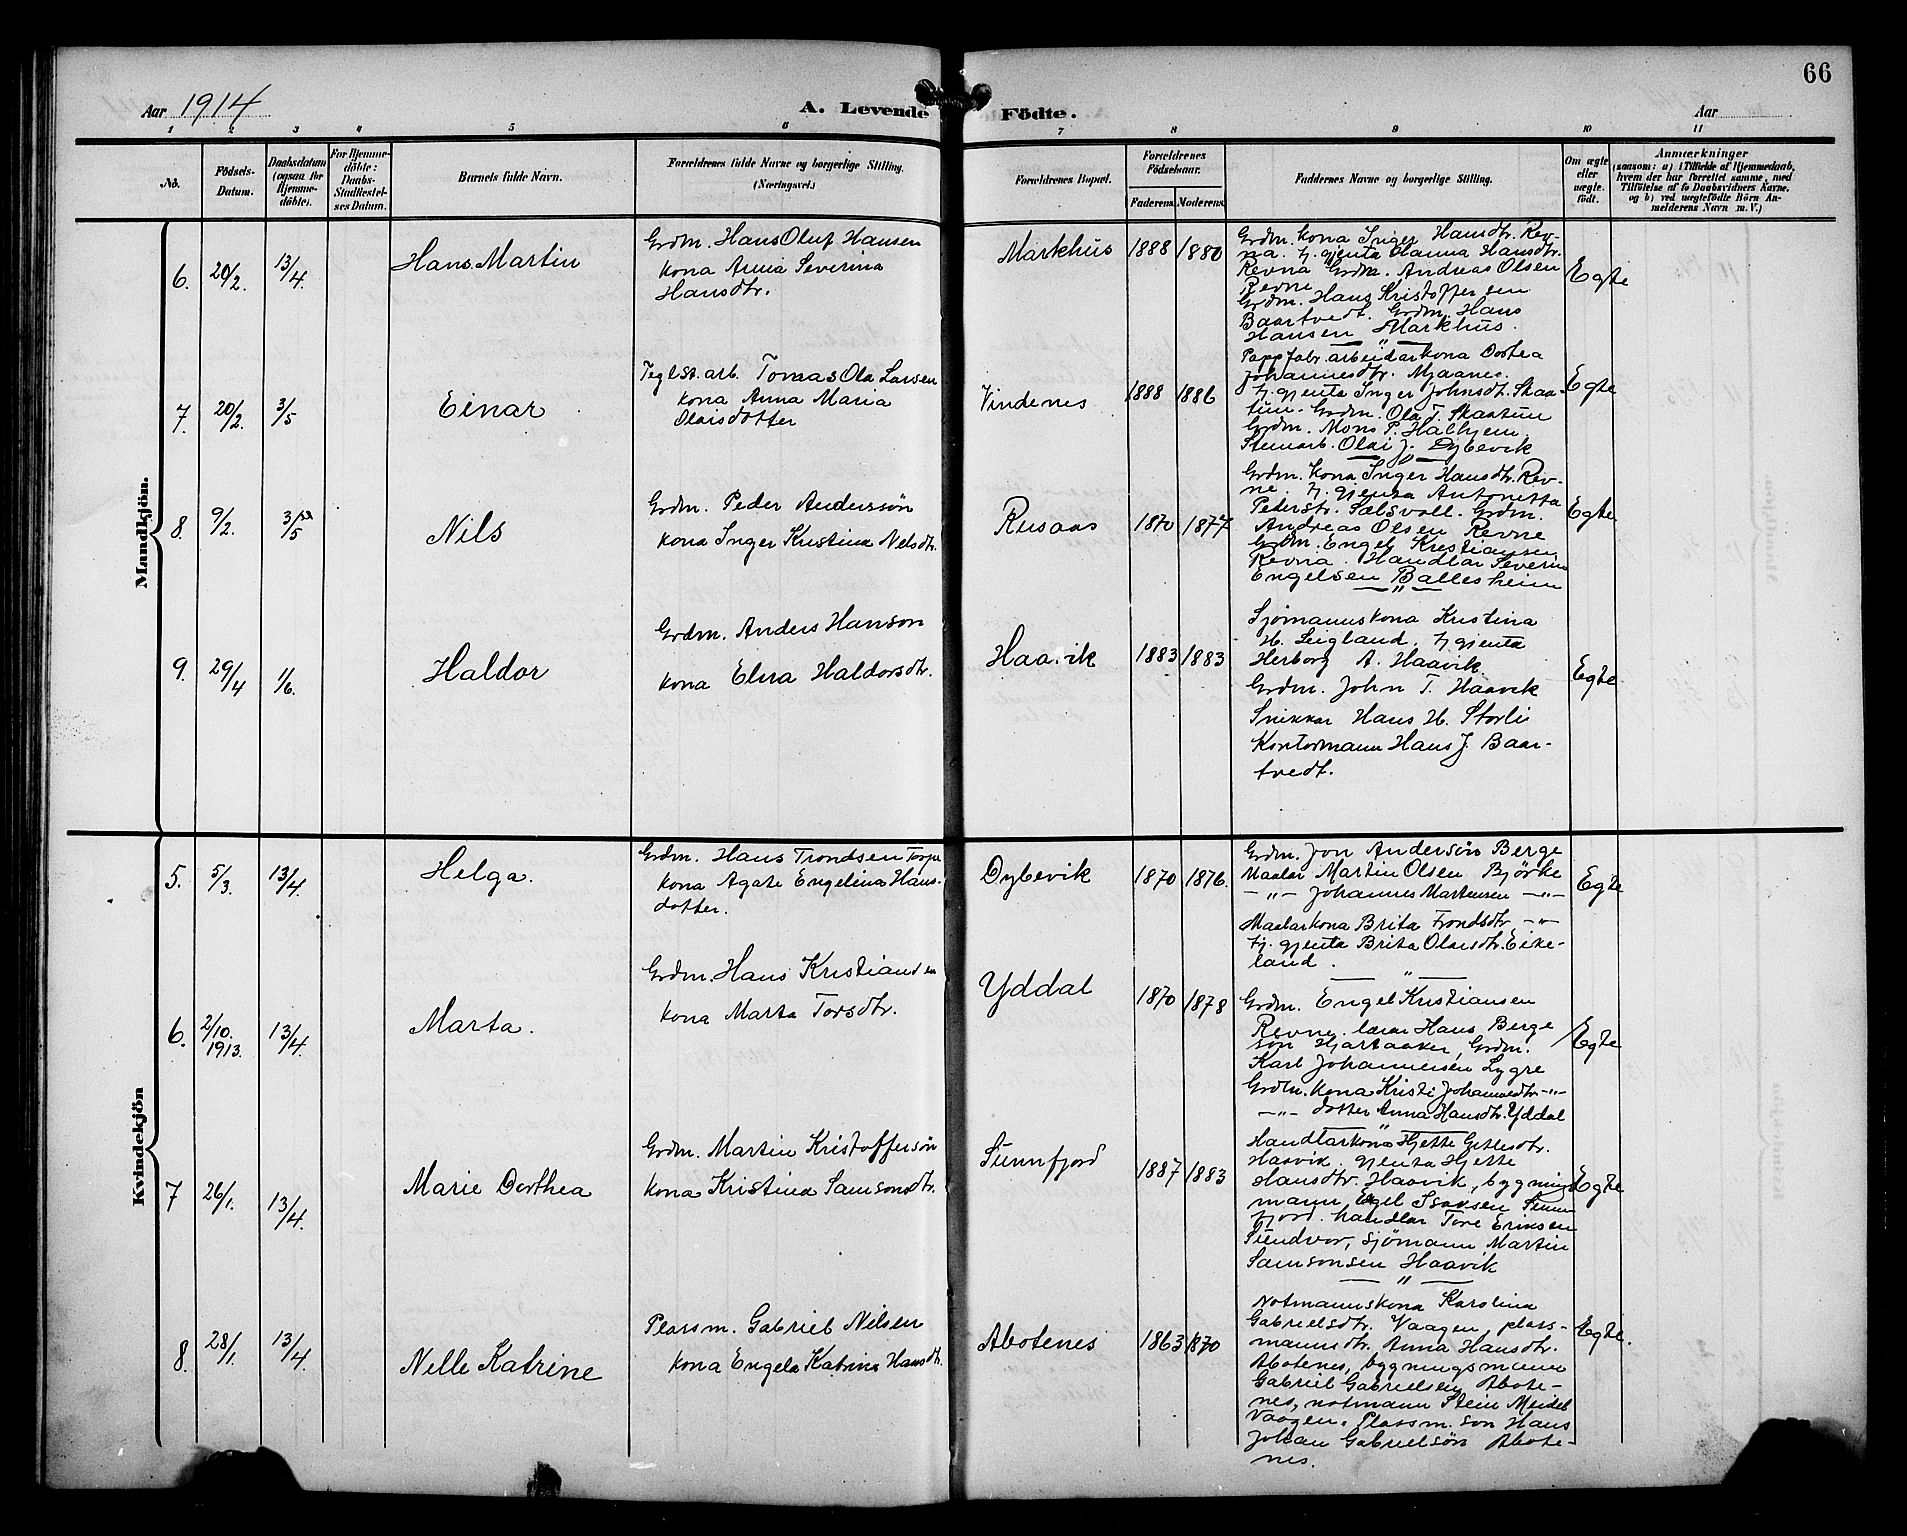 66
Aar 1914
A. Levende Födte.
Aar
1 2 3 4 5 6 7 8 9 10 11
No.
Födsels-
Datum.
Daabsdatum
(ogsaa for
Hjemme-
döbte).
For Hjemme-
döbte:
Daabs-
Stadfæstel-
ses Datum.
Barnets fulde Navn.
Forældrenes fulde Navne og borgerlige Stilling.
(Næringsvei.)
Forældrenes Bopæl.
Forældrenes
Födselsaar.
Faderens.
Moderens.
Faddernes Navne og borgerlige Stilling.
Om ægte
eller
uægte
födt.
Anmærkninger
(saasom: a) i Tilfælde af Hjemmedaab,
hvem der har forrettet samme, med
Tilföielse af to Daabsvidners Navne,
og b) ved uægtefödte Börn An-
melderens Navn m. V.)
Mandkjön.
6. 20/2. 13/4.
Hans Martin
Grdm. Hans Oluf Hansen
kona Anna Severina
Hansdtr.
Markhus 1888 1880
Grdm. kona Inger Hansdtr. Rev-
na. tj. gjenta Hanna Hansdtr.
Revna Grdm. Andreas Olsen
Revne
Grdm. Hans Kristoffersen
Baartvedt. Grdm. Hans
Hansen Markhus.
Egte
7. 20/2. 3/5
Einar
Teglst. arb. Tomas Ola Larsen
kona Anna Maria
Olaisdotter
Vindenes 1888 1886
Pappfabr. arbeidarkona Dortea
Johannesdtr. Mjaanes.
tj. gjenta Inger Johnsdt. Skaa-
tun. Grdm. Ola T. Skaatun
Grdm. Mons P. Halhjem
Steinarb. Olai J. Dybevik
Egte
8. 9/2. 3/5
Nils
Grdm. Peder Anderssön
kona Inger Kristina Nelsdtr.
Rusaas 1870 1877
Grdm. kona Inger Hansdtr. Rev-
ne. tj. gjenta Antonetta
Peterstr. Sælsvoll. Grdm.
Andreas Olsen Revne
Grdm. Engel Kristiansen
Revna. Handlar Severin
Engelsen Ballesheim
Egte
9. 29/4 1/6.
Haldor
Grdm. Anders Hanson
kona Elna Haldorsdtr.
Haavik 1883 1883
Sjømannskona Kristina
H. Leigland. tj gjenta
Herborg A. Haavik.
Grdm. John T. Haavik
Snikkar Hans H. Storli
Kontormann Hans J. Baar-
tvedt.
Egte
Kvindekjön
5. 5/3. 13/4.
Helga.
Grdm. Hans Trondsen
kona Agate Engelina Hans-
dotter.
Dybevik 1870 1876.
Grdm. Jon Andersön Berge
Maalar Martin Olsen Björke
–„– Johannes Martensen –„–
Maalarkona Brita Trondsdtr –„–
tj. gjenta Brita Olaisdtr. Eike-
land.
Egte
6. 2/10. 1913. 13/4.
Marta.
Grdm. Hans Kristiansen
kona Marta Torsdtr.
Yddal 1870 1878
Grdm. Engel Kristiansen
Revne. lærar Hans Berge
son Hjartaaker, Grdm.
Karl Johannessen Lygre
Grdm. kona Kristi Johannesdtr –„–
–„– dotter Anna Hansdtr. Yddal
Egte
7 26/1. 13/4.
Marie Dorthea
Grdm. Martin Kristofferson
kona Kristina Samsonsdtr.
Sunnfjord 1887 1883
Handlarkona Hjette Gittlesdtr.
Haavik. gjenta Hjette
Hansdtr. Haavik, bygnings
mann Engel Isaksen Sunn-
fjord. handlar Tore Eriksen
Sundvor, sjømann Martin
Samsonsen Haavik
Egte
8. 28/1. 13/4.
Nelle Katrine
Plassm. Gabriel Nilsen
kona Engela Katrina Hansdtr.
Abotenes 1863 1870
Notmannskona Karolina
Gabrielsdtr. Vaagen, plass-
mannsdtr. Anna Hansdtr.
Abotenes, bygningsmann
Gabriel Gabrielsen Abote-
nes, notmann Stein Meidel
Vaagen. Plassm. son Hans
Johan Gabrielsön Abote-
nes.
Egte.